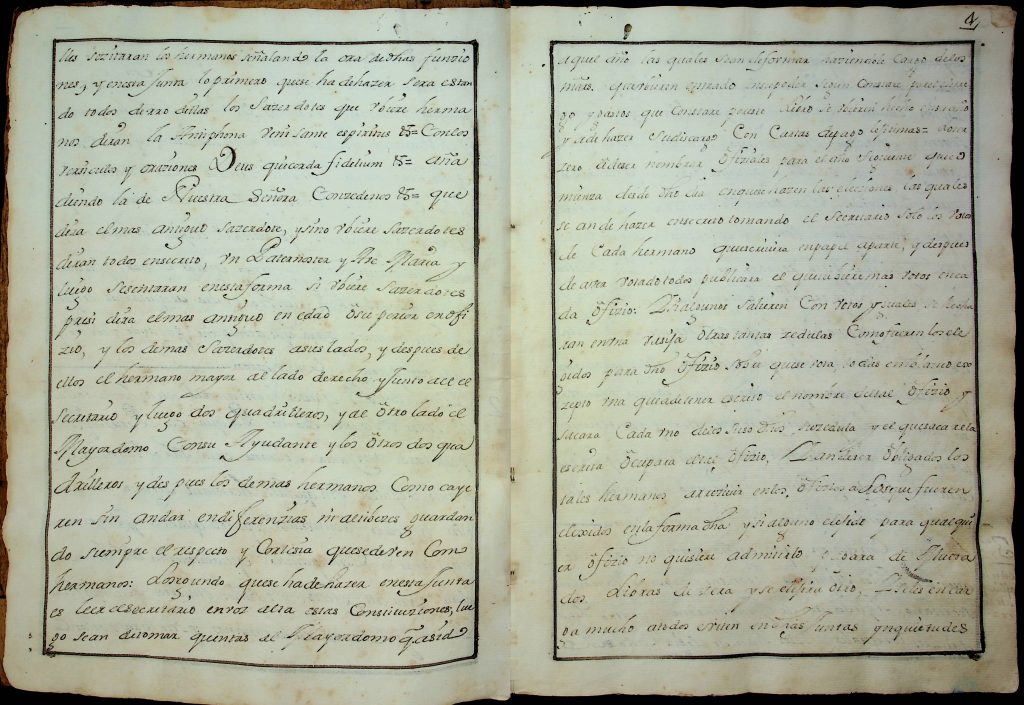 llas se zitaran los hermanos señalando la ora de dhas funzio
nes, y en esta Junta lo primero que se ha de hazer sera estan
do todos dentro della los Sazerdotes que ubiere herma
nos diran la Antiphona Veni sante espiritus & = Con los
versiculos y oraziones Deus qui corda fidelium & = aña
diendo la de Nuestra Señora Conzedenos & = que
dira el mas antiguo sazerdote, y si no ubiere sazerdotes
diran todos en secreto, un Paternoster y Ave Maria y
luego se sentaran en esta forma si ubiere sazerdotes
presidira el mas antiguo en edad o superior en ofi
zio, y los demas sazerdotes a sus lados, y despues de
ellos el hermano mayor al lado derecho y Junto a el el
secretario y luego dos quadrilleros, y al otro lado el
Mayordomo Con su Ayudante y los otros dos qua
drilleros y despues los demas hermanos Como caye
ren sin andar en diferenzias ni altibezes guardan
do siempre el respecto y Cortesia que se deven Como
hermanos: Lo segundo que se ha de hazer en esta Junta
es leer el secretario en voz alta estas Constituziones, lue
go se an de tomar quentas al Mayordomo q̃ a sido
4
aquel año las quales se an de formar haziendole Cargo de los
mrs. que ubieren entrado en su poder segun Constare por el libro
y gastos que Constare
y se a de hazer su descargo Con Cartas de pago lexitimas =
zero a de ser nombrar ofiziales para el año siguiente que co
mienza desde dho dia en que se hazen las elecziones, las quales
se an de hazer en secreto tomando el Secretario solo los votos
de Cada hermano que escrivira en papel aparte, y despues
de aver votado todos publicara el que ubiere mas votos en ca
da ofizio: Y si algunos salieren Con votos yguales se hecha
ran en una vasija otras tantas zedulas Como fueran los ele
xidos para dho ofizio sobre que se vota, todas en blanco exe
zepto una que a de tener escrito el nombre de tal ofizio y
sacara Cada uno de los suso dhos, su zedula y el que sacare la
escrita ocupara el tal ofizio. Y an de ser obligados los
tales hermanos a rezivir en los ofizios a los que fueren
elexidos en la forma dha y si alguno electo para qualqui
er ofizio no quisiere admitirlo pague de
dos libras de zera y se elexira otro. Y se les encar
ga mucho a todos eviten en dhas Juntas ynquietudes